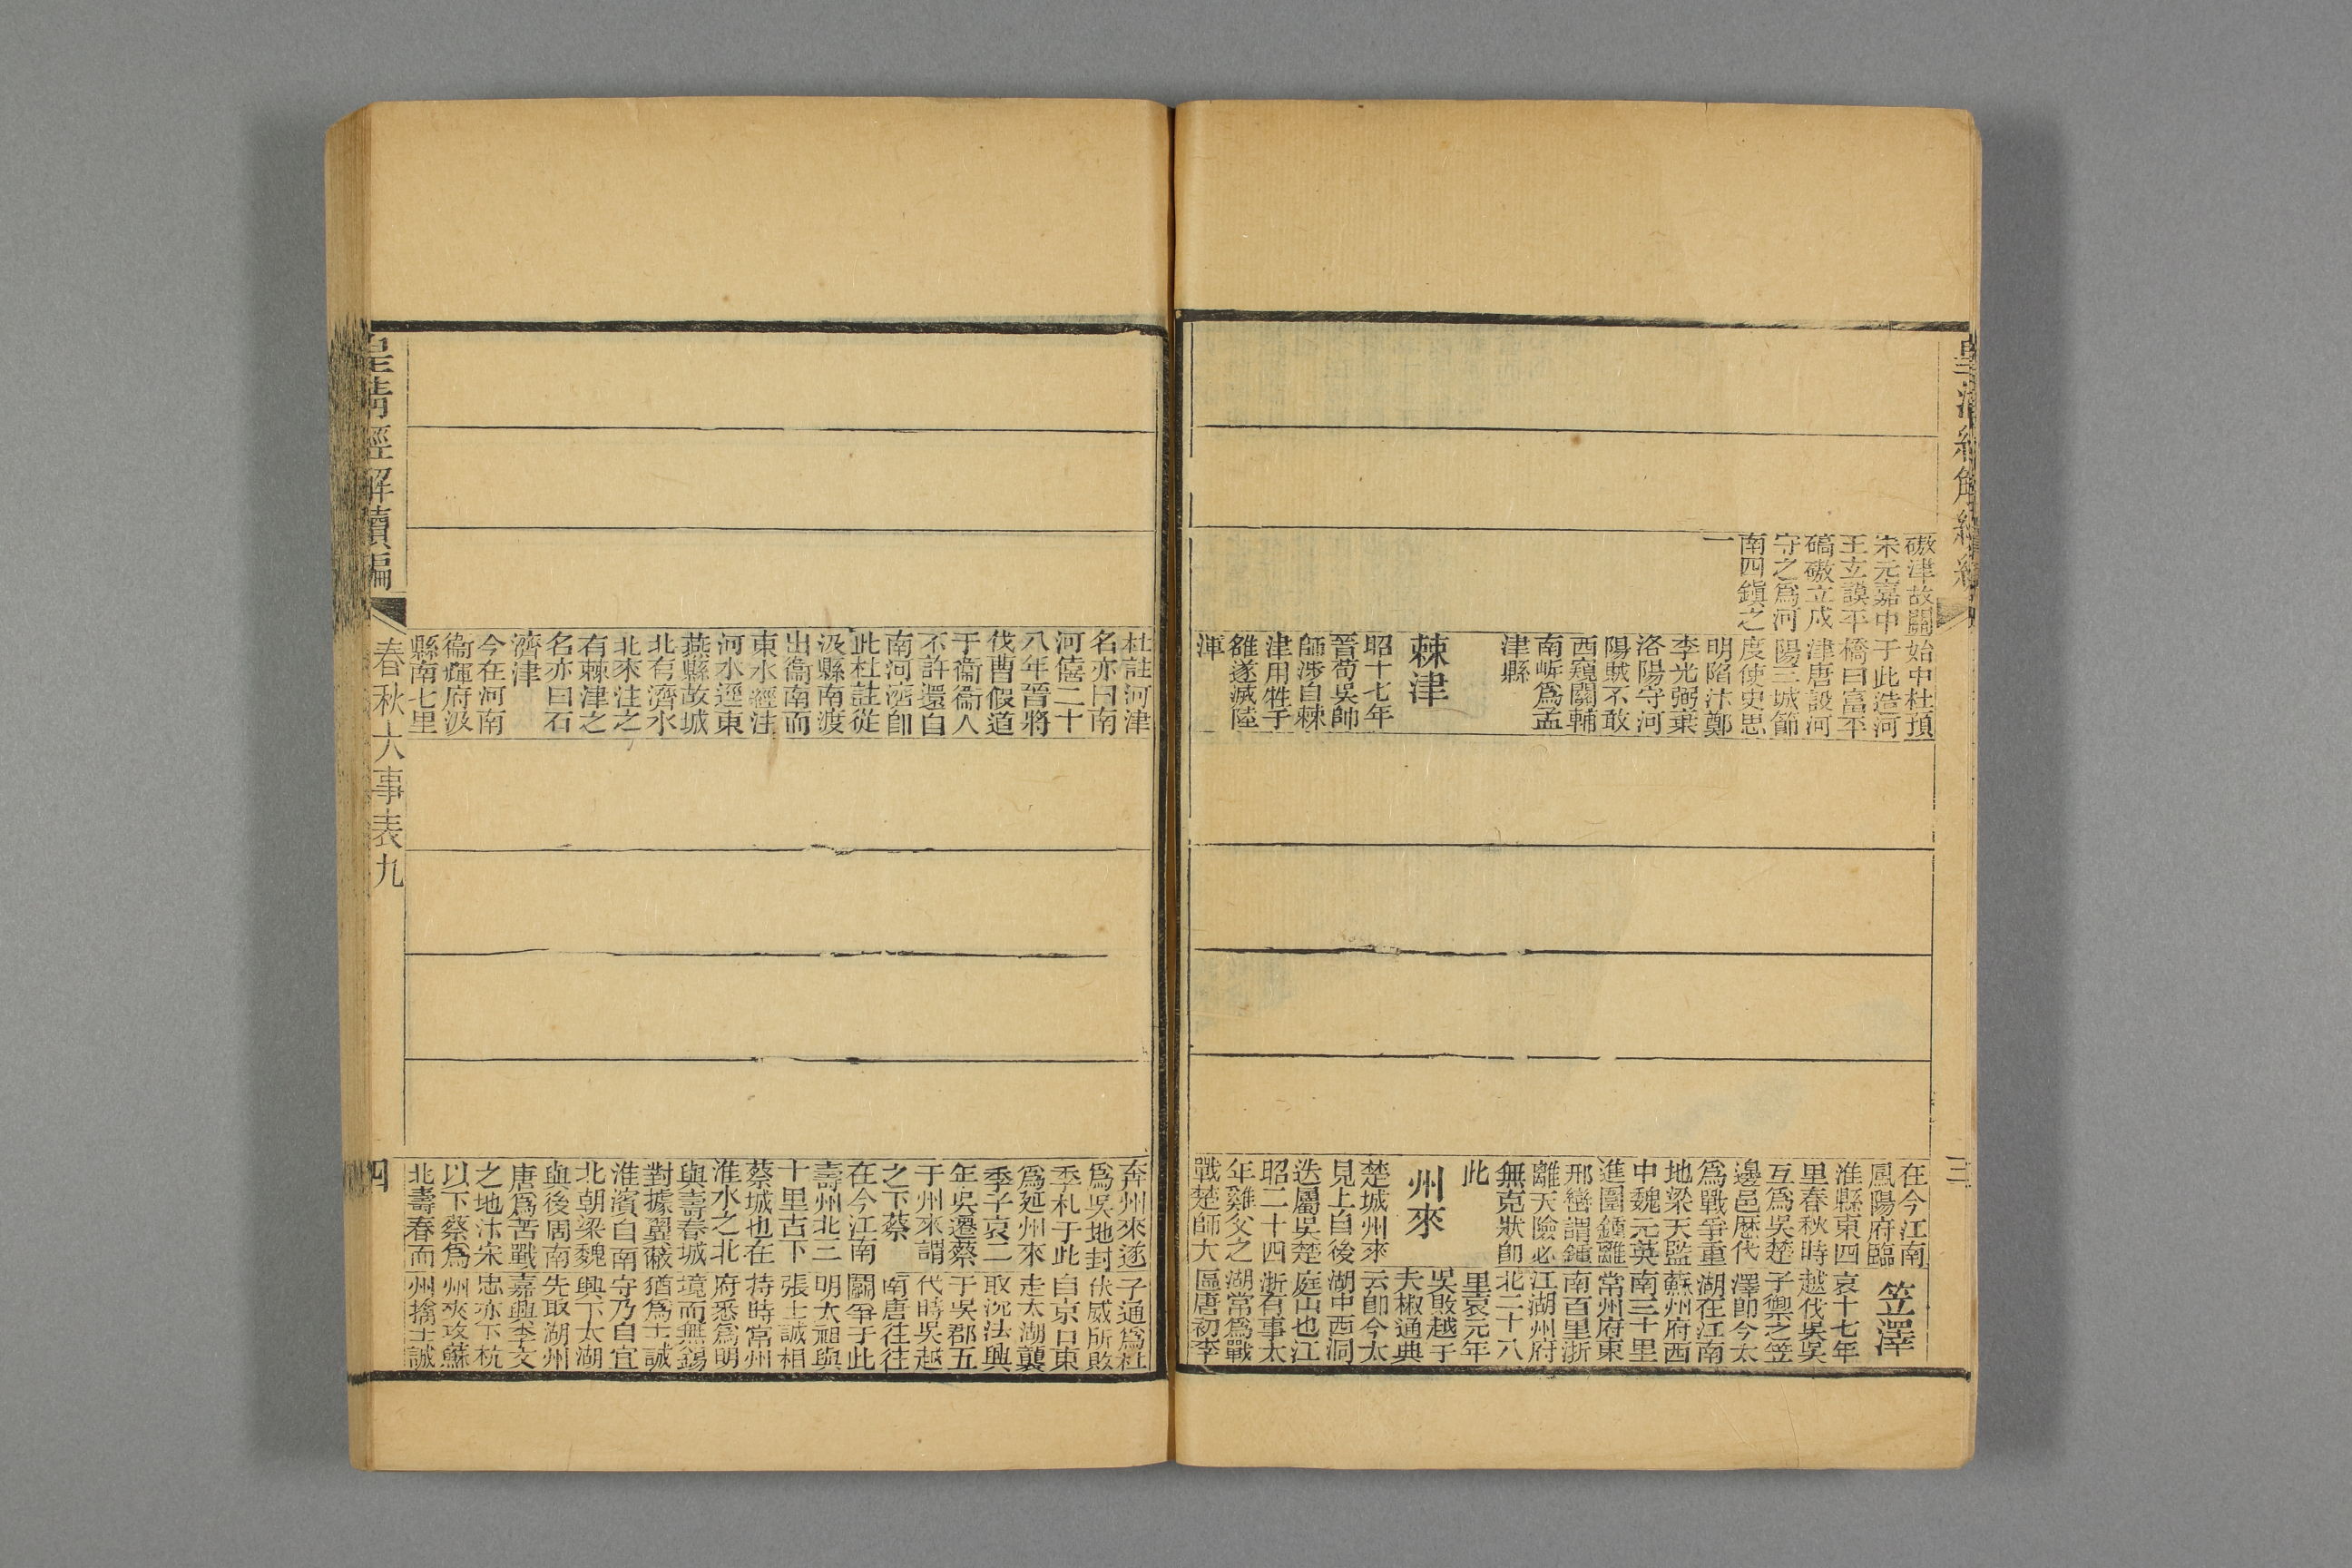 皇清經解續編
三
磝津故關
宋元嘉中
王立謨平
碻磝立戍
守之爲河
南四鎮之
一
始中杜預
于此造河
橋曰富平
津唐設河
陽三城節
度使史思
明陷汴鄭
李光弼棄
洛陽守河
陽賊不敢
西窺關輔
南岍爲孟
津縣
棘津
昭十七年
晉荀吳帥
師涉自棘
津用牲子
雒遂滅陸
渾
在今江南
鳳陽府臨
淮縣東四
里春秋時
互爲吳楚
邊邑歷代
爲戰爭重
地梁天監
中魏元英
進圍鍾離
邢巒謂鍾
離天險必
無克狀卽
此
州來
楚城州來
見上自後
迭屬吳楚
昭二十四
年雞父之
戰楚師大
笠澤
哀十七年
越伐吳吳
子禦之笠
澤卽今太
湖在江南
蘇州府西
南三十里
常州府東
南百里浙
江湖州府
北二十八
里哀元年
吳敗越于
夫椒通典
云卽今太
湖中西洞
庭山也江
浙有事太
湖常爲戰
區唐初李
杜註河津
名亦曰南
河僖二十
八年晉將
伐曹假道
于衞衞人
不許還自
南河濟卽
此杜註從
汲縣南渡
出衞南而
東水經注
河水逕東
燕縣故城
北有濟水
北來注之
有棘津之
名亦曰石
濟津
今在河南
衞輝府汲
縣南七里
奔州來遂
爲吳地封
季札于此
爲延州來
季子哀二
年吳遷蔡
于州來謂
之下蔡
在今江南
壽州北三
十里古下
蔡城也在
淮水之北
與壽春城
對據翼蔽
淮濱自南
北朝梁魏
與後周南
唐爲苦戰
之地汴宋
以下蔡爲
北壽春而
子通爲杜
伏威所敗
自京口東
走太湖襲
取沈法興
于吳郡五
代時吳越
南唐往往
鬭爭于此
明太祖與
張士誠相
持時常州
府悉爲明
境而無錫
猶爲士誠
守乃自宜
興下太湖
先取湖州
嘉興李文
忠亦下杭
州夾攻蘇
州擒士誠
皇清經解續編
春秋大事表九
四